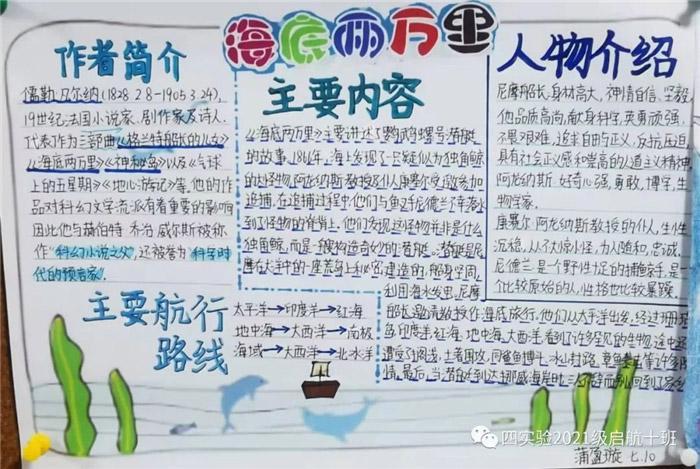 海底两万里
作者简介
儒勒·凡尔纳(1828.2.8-1905.3.24),
19世纪法国小说家、剧作家及诗人.
代表作为三部曲《格兰特船长的儿女》
《海底两万里》《神秘岛》以及《气球
上的五星期》《地心游记》等,他的作
品对科幻文学流派有着重要的影响
因此他与赫伯特·乔治·威尔斯被称
作“科幻小说之父”,还被誉为“科学时
代的预言家”.
主要内容
《海底两万里》主要讲述了鹦鹉螺号潜艇
的故事,1864年,海上发现了一只疑似为独角鲸
的怪物,阿龙纳斯教授及仆人康塞尔受邀参加
追捕,在追捕过程中他们与鱼叉手尼德兰不幸落水
到了怪物的脊背上,他们发现这怪物并非是什么
独角鲸,而是一艘构造奇妙的潜艇.潜艇是尼
摩在大洋中的一座荒岛上秘密建造的,船身坚固,
利用海水发电,尼摩
船长邀请教授作海底旅行,他们从太平洋出发,经过珊瑚
岛、印度洋、红海、地中海、大西洋,看到了许多罕见的生物,还
遭受过搁浅、土著围攻、同鲨鱼搏斗、冰山封路、章鱼袭击等许多
情.最后,当潜艇到达挪威海岸时,三人不辞而别,回到了家乡
人物介绍
尼摩船长:身材高大,神情自信,坚毅
他品质高尚,献身科学,英勇顽强,
不畏艰难,追求自由与正义,反抗压迫
具有社会正义感和崇高的人道主义精神
阿龙纳斯:好奇心强,勇敢,博学,生
物学家.
康塞尔:阿龙纳斯教授的仆人,生性
沉稳,从不大惊小怪,为人随和,忠诚.
尼德兰:是个野性十足的捕鲸手,是一
个比较原始的人,性格也比较暴躁.
主要航行
路线
太平洋→印度洋→红海
地中海→大西洋→南极
海域→大西洋→北冰洋
四实验2021级启航十班
蒲盈璇 七.10